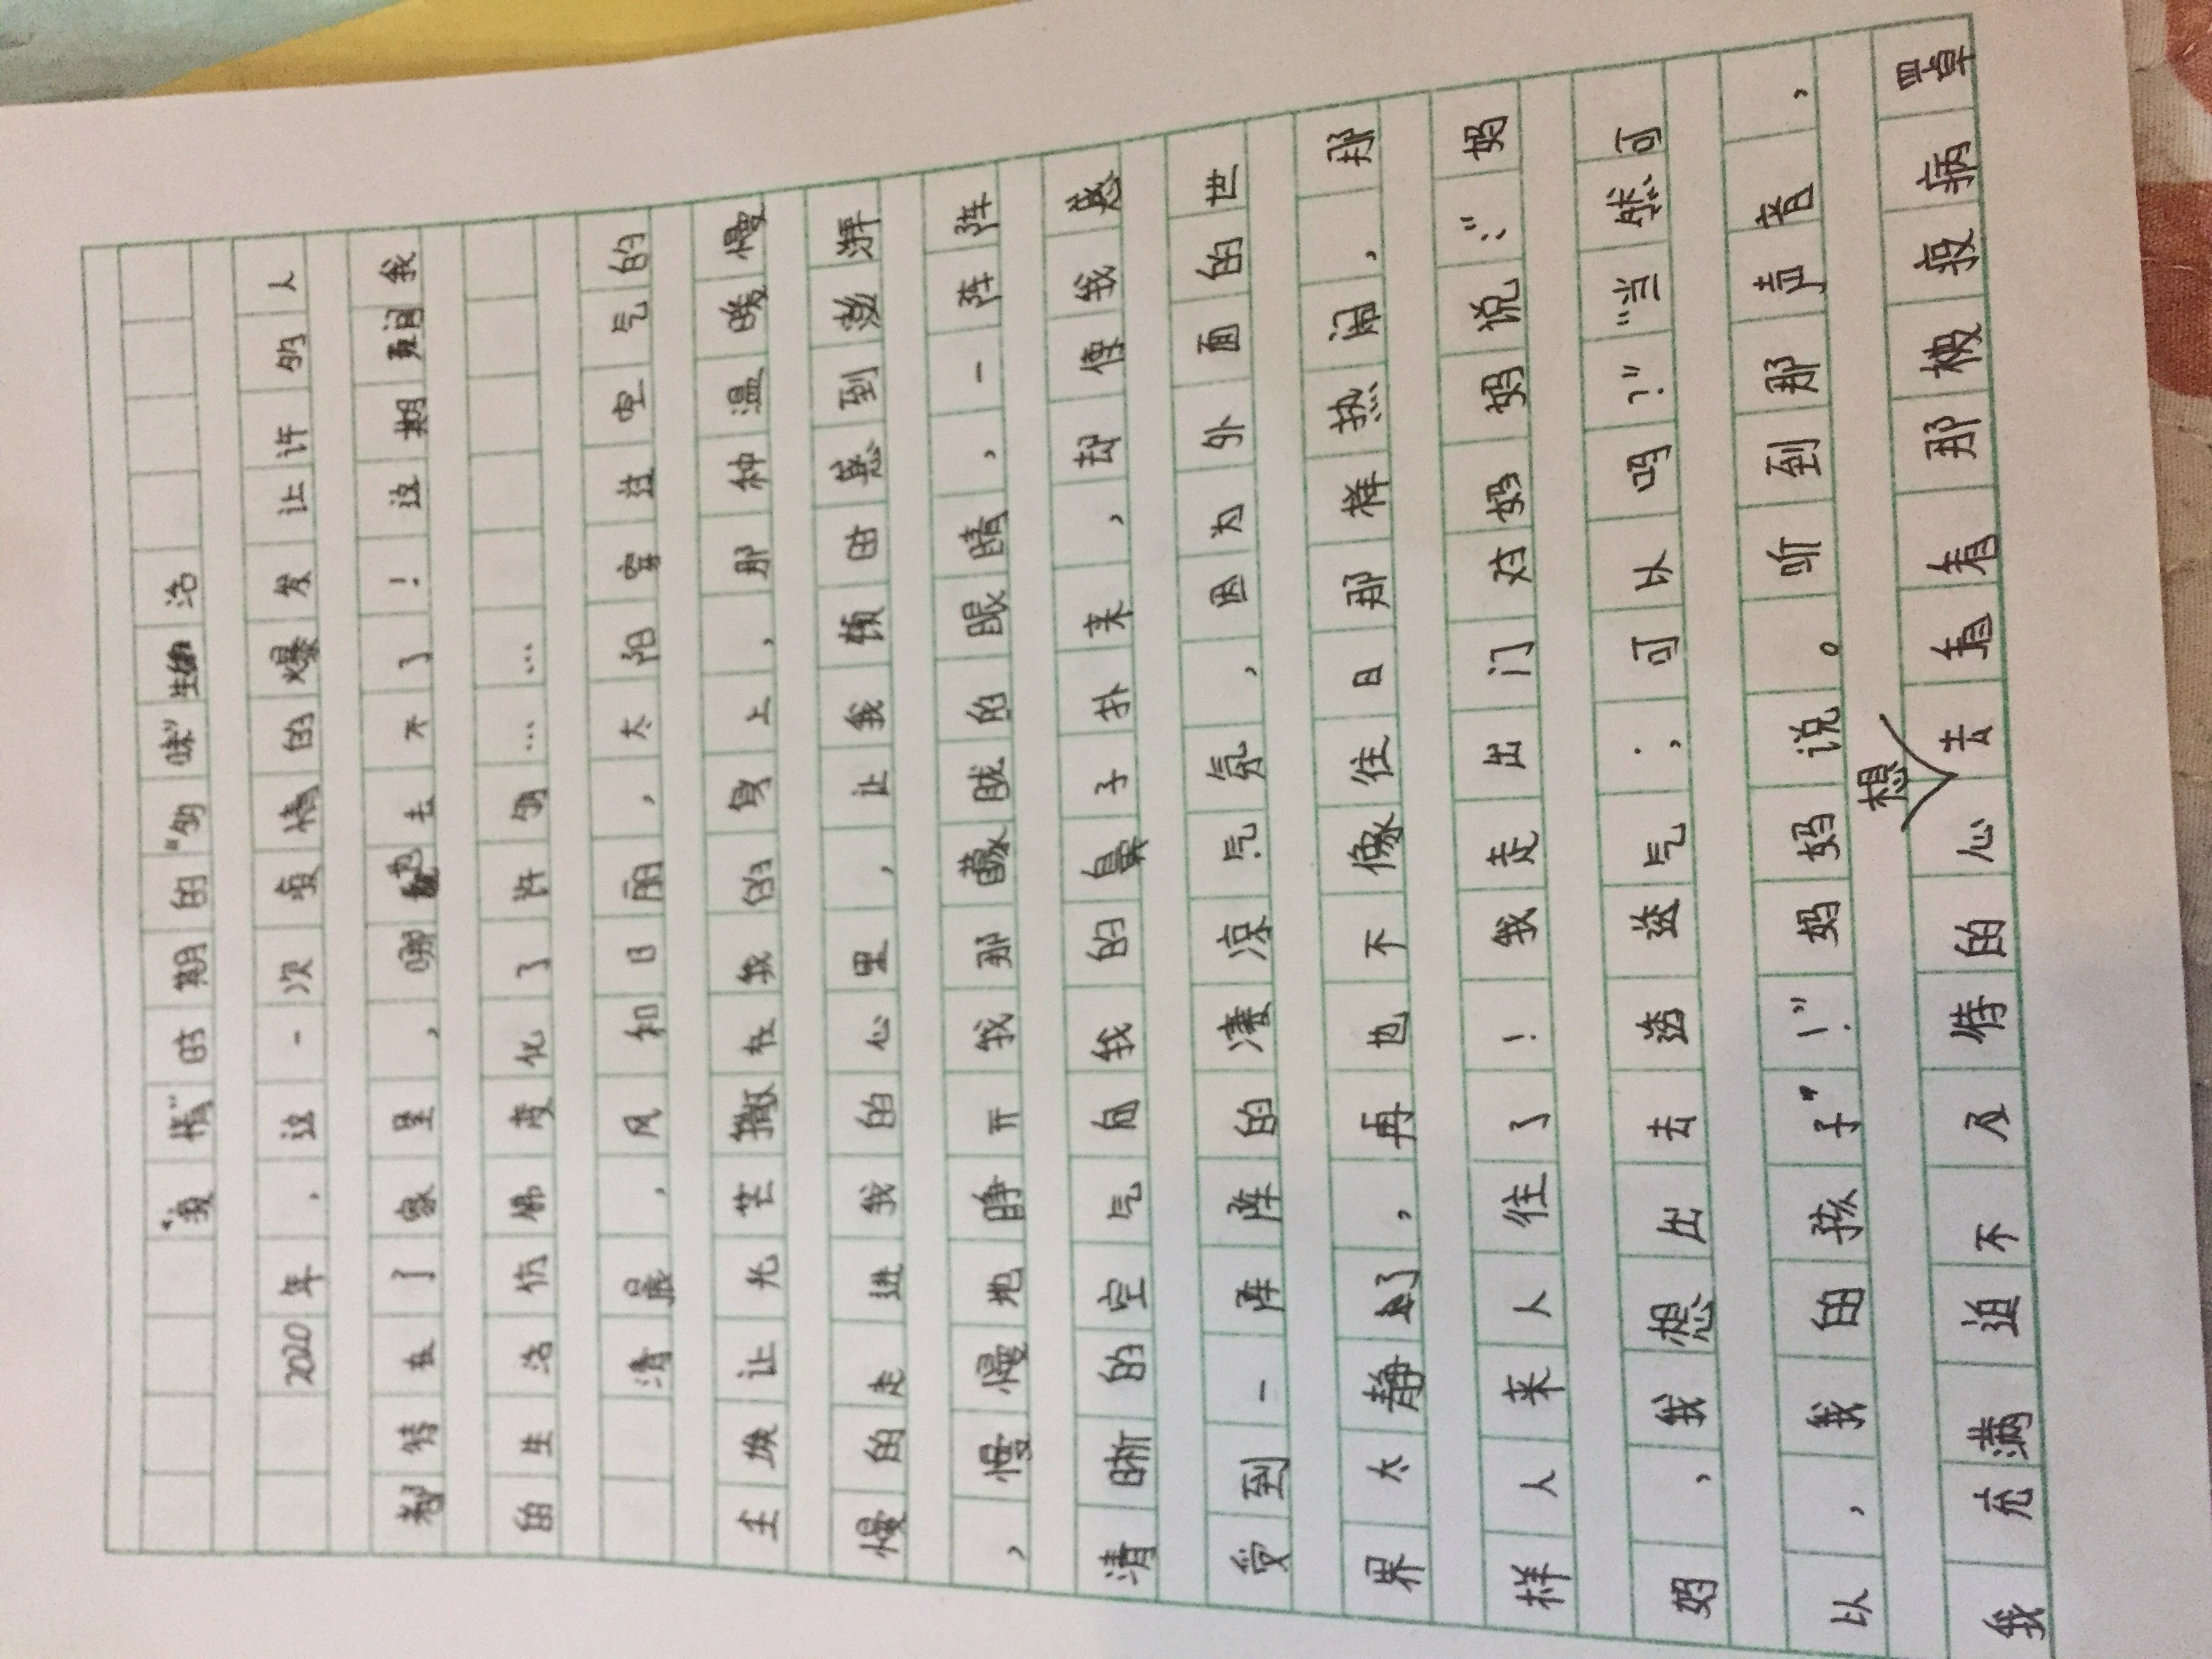 “疫情”时期的“多味”生活
2020年，这一次疫情的爆发让许多的人
都待在了家里，哪也去不了！这期间我
的生活仿佛变化了许多……
清晨，风和日丽，太阳穿过空气的
尘埃让光芒撒在我的身上，那种温暖慢
慢的走进我的心里，让我顿时感到澎湃
，慢慢地睁开我那朦胧的眼睛，一阵阵
清晰的空气向我的鼻子扑来，却使我感
受到一阵阵的凄凉气氛，因为外面的世
界太静了，再也不像往日那样热闹，那
样人来人往了！我走出门对妈妈说：“妈
妈，我想出去透透气；可以吗？”“当然可
以，我的孩子”！”妈妈说。听到那声音，
我充满迫不及待的心想去看看那被疫病罩